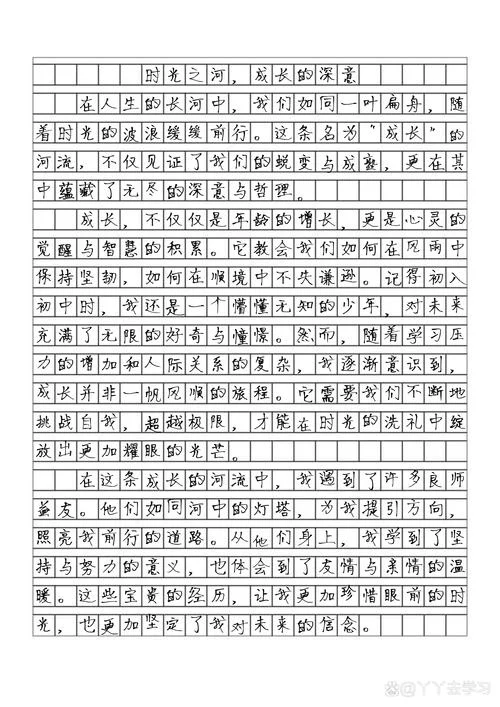 时光之河，成长的深意
在人生的长河中，我们如同一叶扁舟，随
着时光的波浪缓缓前行。这条名为“成长”的
河流，不仅见证了我们的蜕变与成熟，更在其
中蕴藏了无尽的深意与哲理。
成长，不仅仅是年龄的增长，更是心灵的
觉醒与智慧的积累。它教会我们如何在风雨中
保持坚韧，如何在顺境中不失谦逊。记得初入
初中时，我还是一个懵懂无知的少年，对未来
充满了无限的好奇与憧憬。然而，随着学习压
力的增加和人际关系的复杂，我逐渐意识到，
成长并非一帆风顺的旅程。它需要我们不断地
挑战自我，超越极限，才能在时光的洗礼中绽
放出更加耀眼的光芒。
在这条成长的河流中，我遇到了许多良师
益友。他们如同河中的灯塔，为我提引方向，
照亮我前行的道路。从他们身上，我学到了坚
持与努力的意义，也体会到了友情与亲情的温
暖。这些宝贵的经历，让我更加珍惜眼前的时
光，也更加坚定了我对未来的信念。
@丫丫去学习